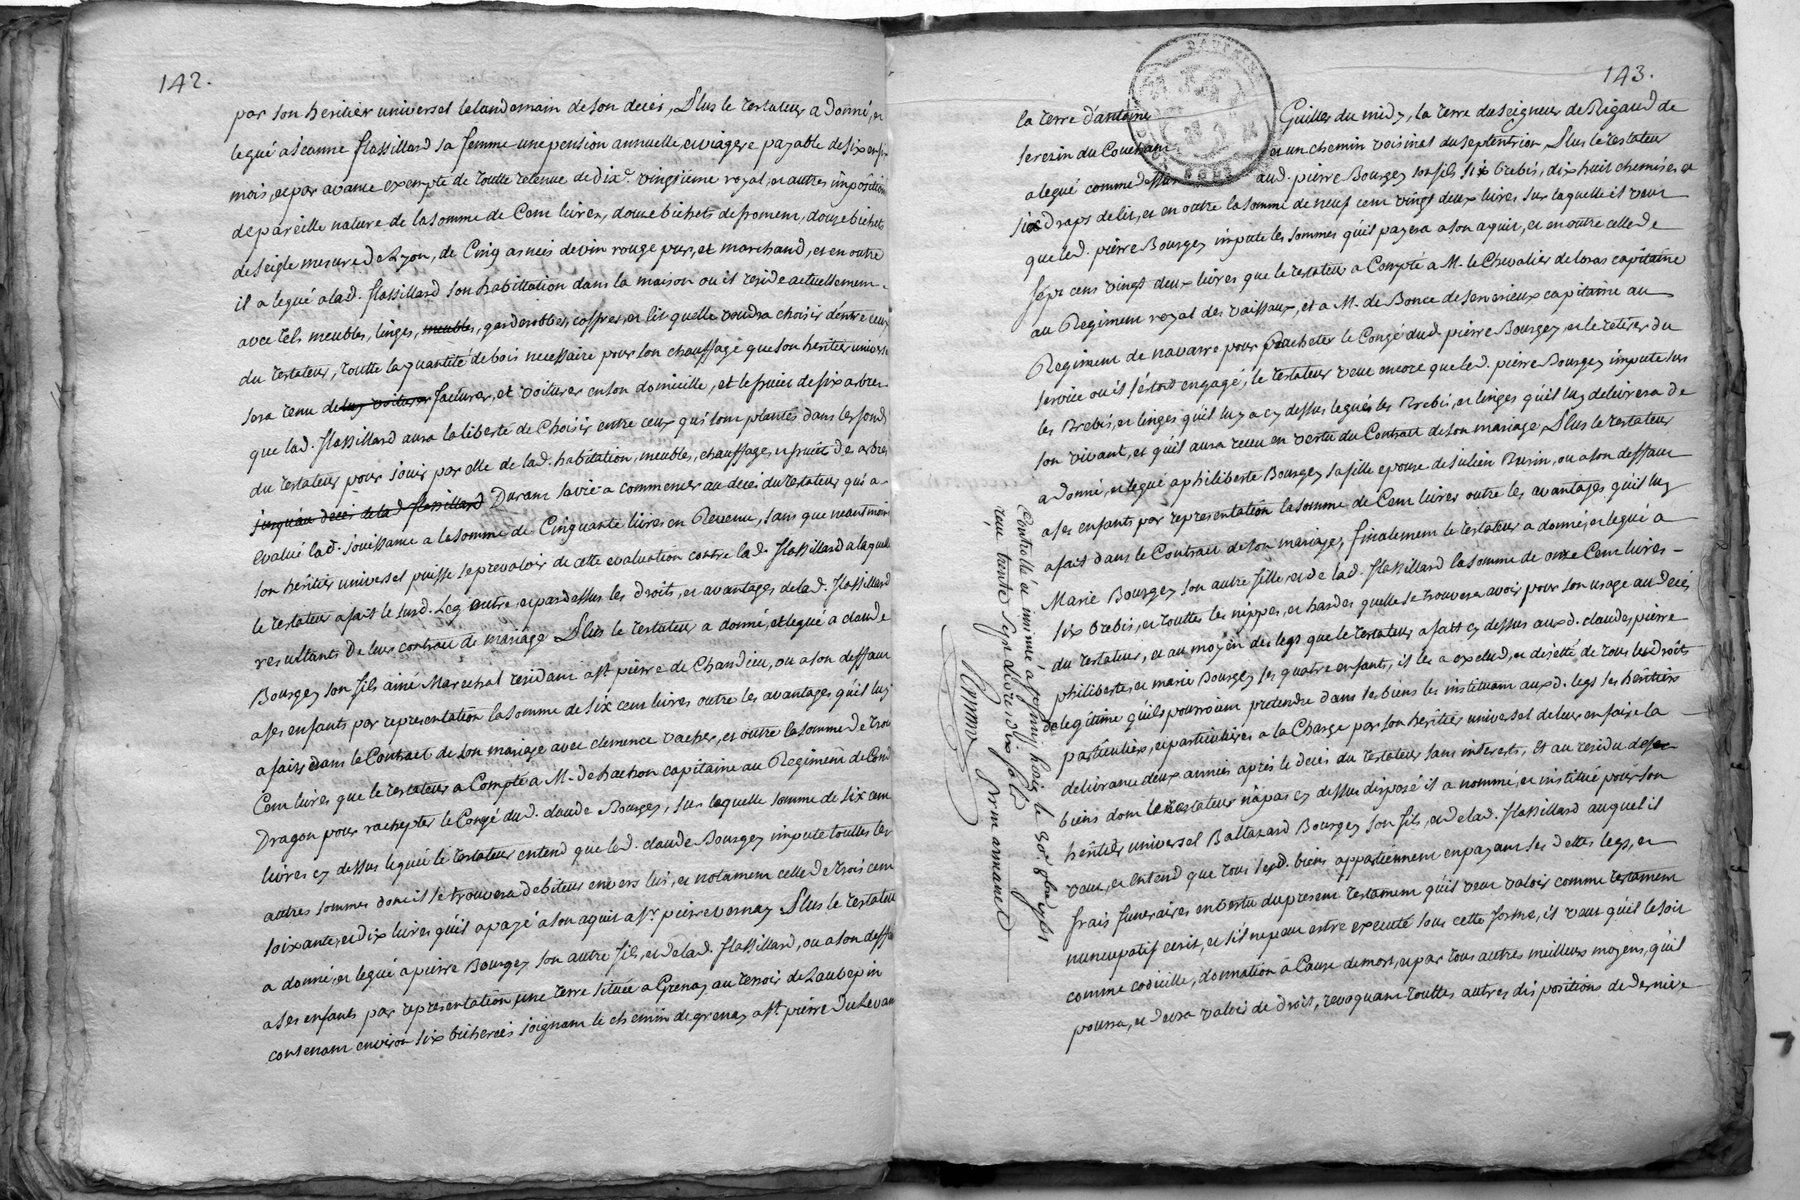 142.
par son heritier universel le landemain de son deces, Plus le testateur a donné, et
legué a Jeanne flassillard sa femme une pension annuelle, et viagere payable de six en six
mois, et par avance exempte de toutte retenue de dix.e vingtiéme royal, et autres impositions
de pareille nature de la somme de Cent livres, douze bichets de froment, douze bichets
de seigle mesure de Lyon, de Cinq asnées de vin rouge pur, et marchand, et en outre
il a legué a lad. flassillard son habittation dans la maison ou il reside actuellement
avec tels meubles, linges, meubles, garderobbes, coffres, et lit quelle voudra choisir d'entre ceux
du testateur, toutte la quantité de bois necessaire pour son chauffage que son heritier universel
sera tenu de luy voiturer facturer, et voiturer en son domicille, et le fruit de six arbres
que lad. flassillard aura la liberté de Choisir entre ceux qui sont plantés dans les fonds
du testateur pour jouir par elle de lad. habitation, meubles, chauffage, et fruit de arbres
jusqu'au déces de lad flassillard Durant sa vie a commencer au deces du testateur qui a
evalué lad. jouissance a la somme de Cinquante livres en Revenu, sans que neantmoins
son heritier universel puisse se prevaloir de cette evaluation contre lad. flassillard a laquelle
le testateur a fait le susd. Leg outre, et pardessus les droits, et avantages de lad. flassillard
resultants de leur contract de mariage Plus le testateur a donné, et legué a claude
Bourgey son fils ainé Marechal residant a St pierre de Chandieu, ou a son deffaut
a ses enfants par representation la somme de six cent livres outre les avantages qu'il luy
a faits dans le Contract de son mariage avec clemence vacher, et outre la somme de trois
Cent livres que le testateur a Compté a M. de hachon capitaine au Regiment de Condé
Dragon pour rachepter le Congé dud. claude Bourgey, sur laquelle somme de six cent
livres cy dessus leguée le testateur entend que led. claude Bourgey impute touttes les
autres sommes dont il se trouvera debiteur envers lui, et notament celle de trois cent
soixante, et dix livres qu'il a payé a son aquit a Sr pierre vernay Plus le testateur
a donné, et legué a pierre Bourgey son autre fils, et de lad. flassillard, ou a son deffaut
a ses enfants par representation une terre située a Grenay au terroir de Laubepin
contenant environ six bicherées joignant le chemin de grenay a St. pierre du Levant
143.
la terre d'antoine Guilles du midy, la terre du seigneur de Rigaud de
serezin du Couchant et un chemin voisinel du septentrion Plus le testateur
a legué comme dessus aud. pierre Bourgey son fils six brebis, dix huit chemises et
six draps de lit, et en outre la somme de neuf cent vingt deux livres sur laquelle il veut
que led. pierre Bourgey impute les sommes qu'il payera a son aquit, et en outre celle de
sept cens vingt deux livres que le testateur a Compté a M. le Chevalier de loras capitaine
au Regiment royal des vaissaux, et a M. de Bonce de senerieux capitaine au
Regiment de navarre pour racheter le Congé dud. pierre Bourgey, et le retirer du
service ou il s'étoit engagé; le testateur veut encore que led. pierre Bourgey impute sur
les Brebis, et linges qu'il luy a cy dessus legués les Brebis, et linges qu'il luy delivrera de
son vivant, et qu'il aura receu en vertu du Contract de son mariage, Plus le testateur
a donné, et legué a philiberte Bourgey sa fille epouse de julien Burin, ou a son deffaut
a ses enfants par representation la somme de Cent livres outre les avantages qu'il luy
a fait dans le Contract de son mariage, finalement le testateur a donné, et legué a
Marie Bourgey son autre fille, et de lad. flassillard la somme de onze Cent livres
six brebis, et touttes les nippes, et hardes quelle se trouvera avoir pour son usage au deces
du testateur, et au moyen des legs que le testateur a fait cy dessus auxd. claude, pierre
philiberte, et marie Bourgey ses quatre enfants, il les a exclud, et dejetté de tous les droits
de legitime qu'ils pourroient pretendre dans ses biens les instituant auxd. legs ses heritiers
particuliers, et particulieres a la Charge par son heritier universel de leur en faire la
delivrance deux années après le deces du testateur sans interets, Et au residu de ses
biens dont le testateur n'a pas cy dessus disposé il a nommé, et institué pour son
heritier universel Baltazard Bourgey son fils, et de lad. flassillard auquel il
veut, et entend que tous sesd. biens appartiennent en payant ses dettes legs, et
frais funeraires en vertu du present testament qu'il veut valoir comme testament
nuncupatif ecrit, et s'il ne peut estre executé sous cette forme, il veut qu'il le soit
comme codicille, donnation à Cause de mort, et par tous autres meilleurs moyens, qu'il
pourra, et devra valoir de droit, revoquant touttes autres dispositions de derniere